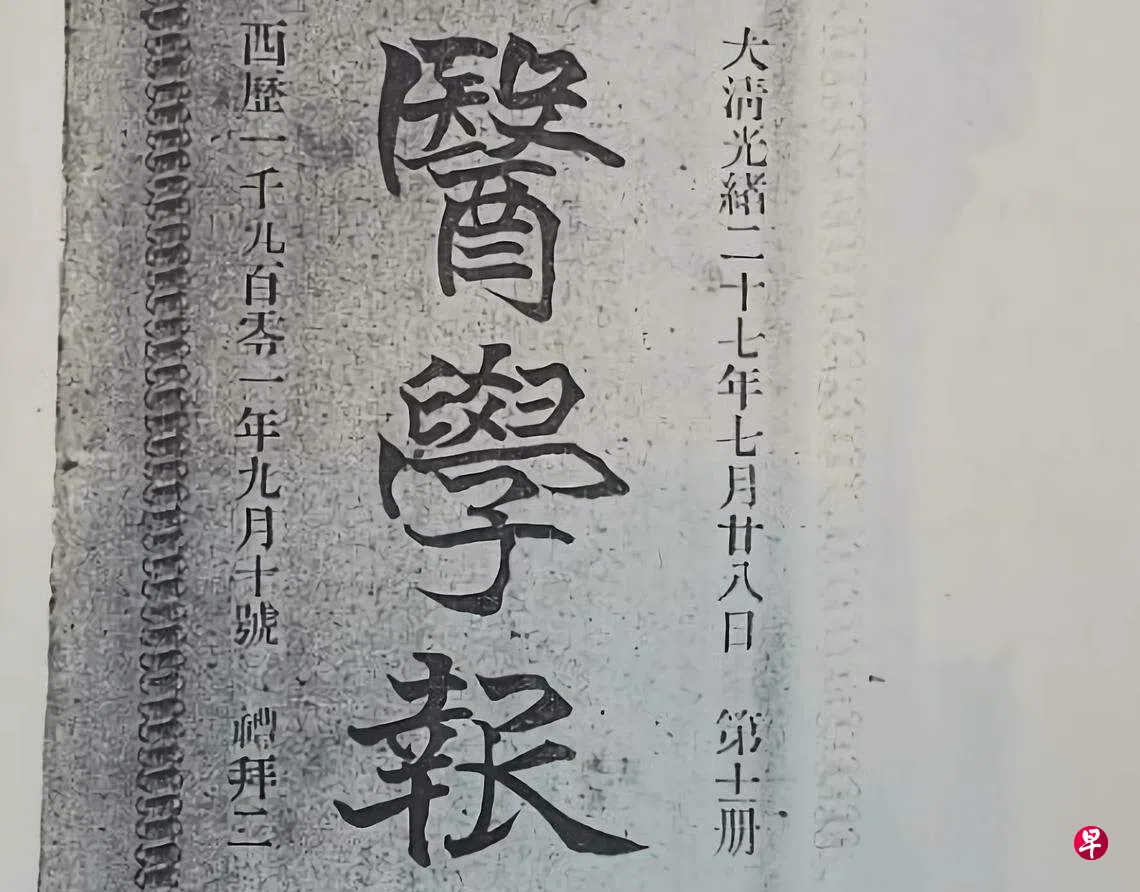 大清光緒二十七年七月廿八日 第十一册
醫學報
西歷一千九百零一年九月十號 禮拜二
早